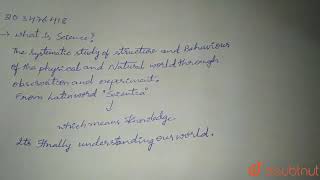 203476418
→ What Is Science?
The Systematic study of structure and Behaviour
of the physical and Natural world through
observation and experiment.
From Latin word "Scientia"
↓
which means Knowledge
Its Finally understanding our world.
doubtnut